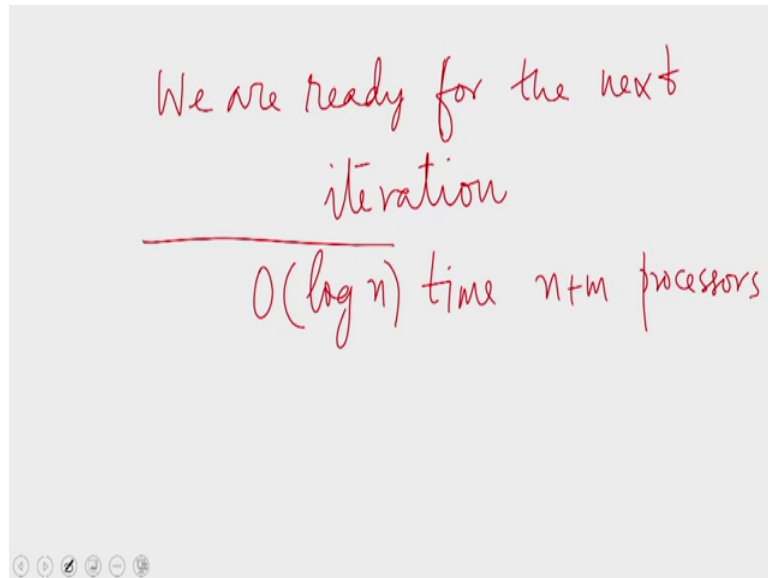 We are ready for the next
iteration
O(log n) time n+m processors